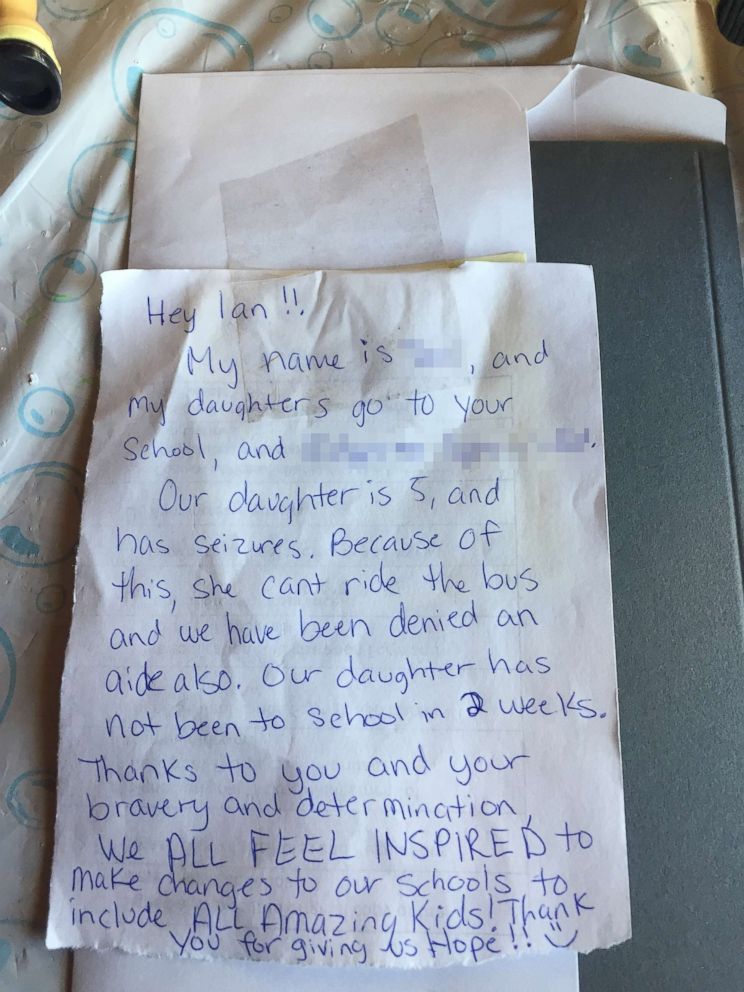 Hey Ian !!
My name is , and
my daughters go to your
School, and .
Our daughter is 5, and
has seizures. Because of
this, she cant ride the bus
and we have been denied an
aide also. Our daughter has
not been to school in 2 weeks.
Thanks to you and your
bravery and determination,
We ALL FEEL INSPIRED to
make changes to our schools to
include ALL Amazing Kids! Thank
you for giving us Hope!! :)